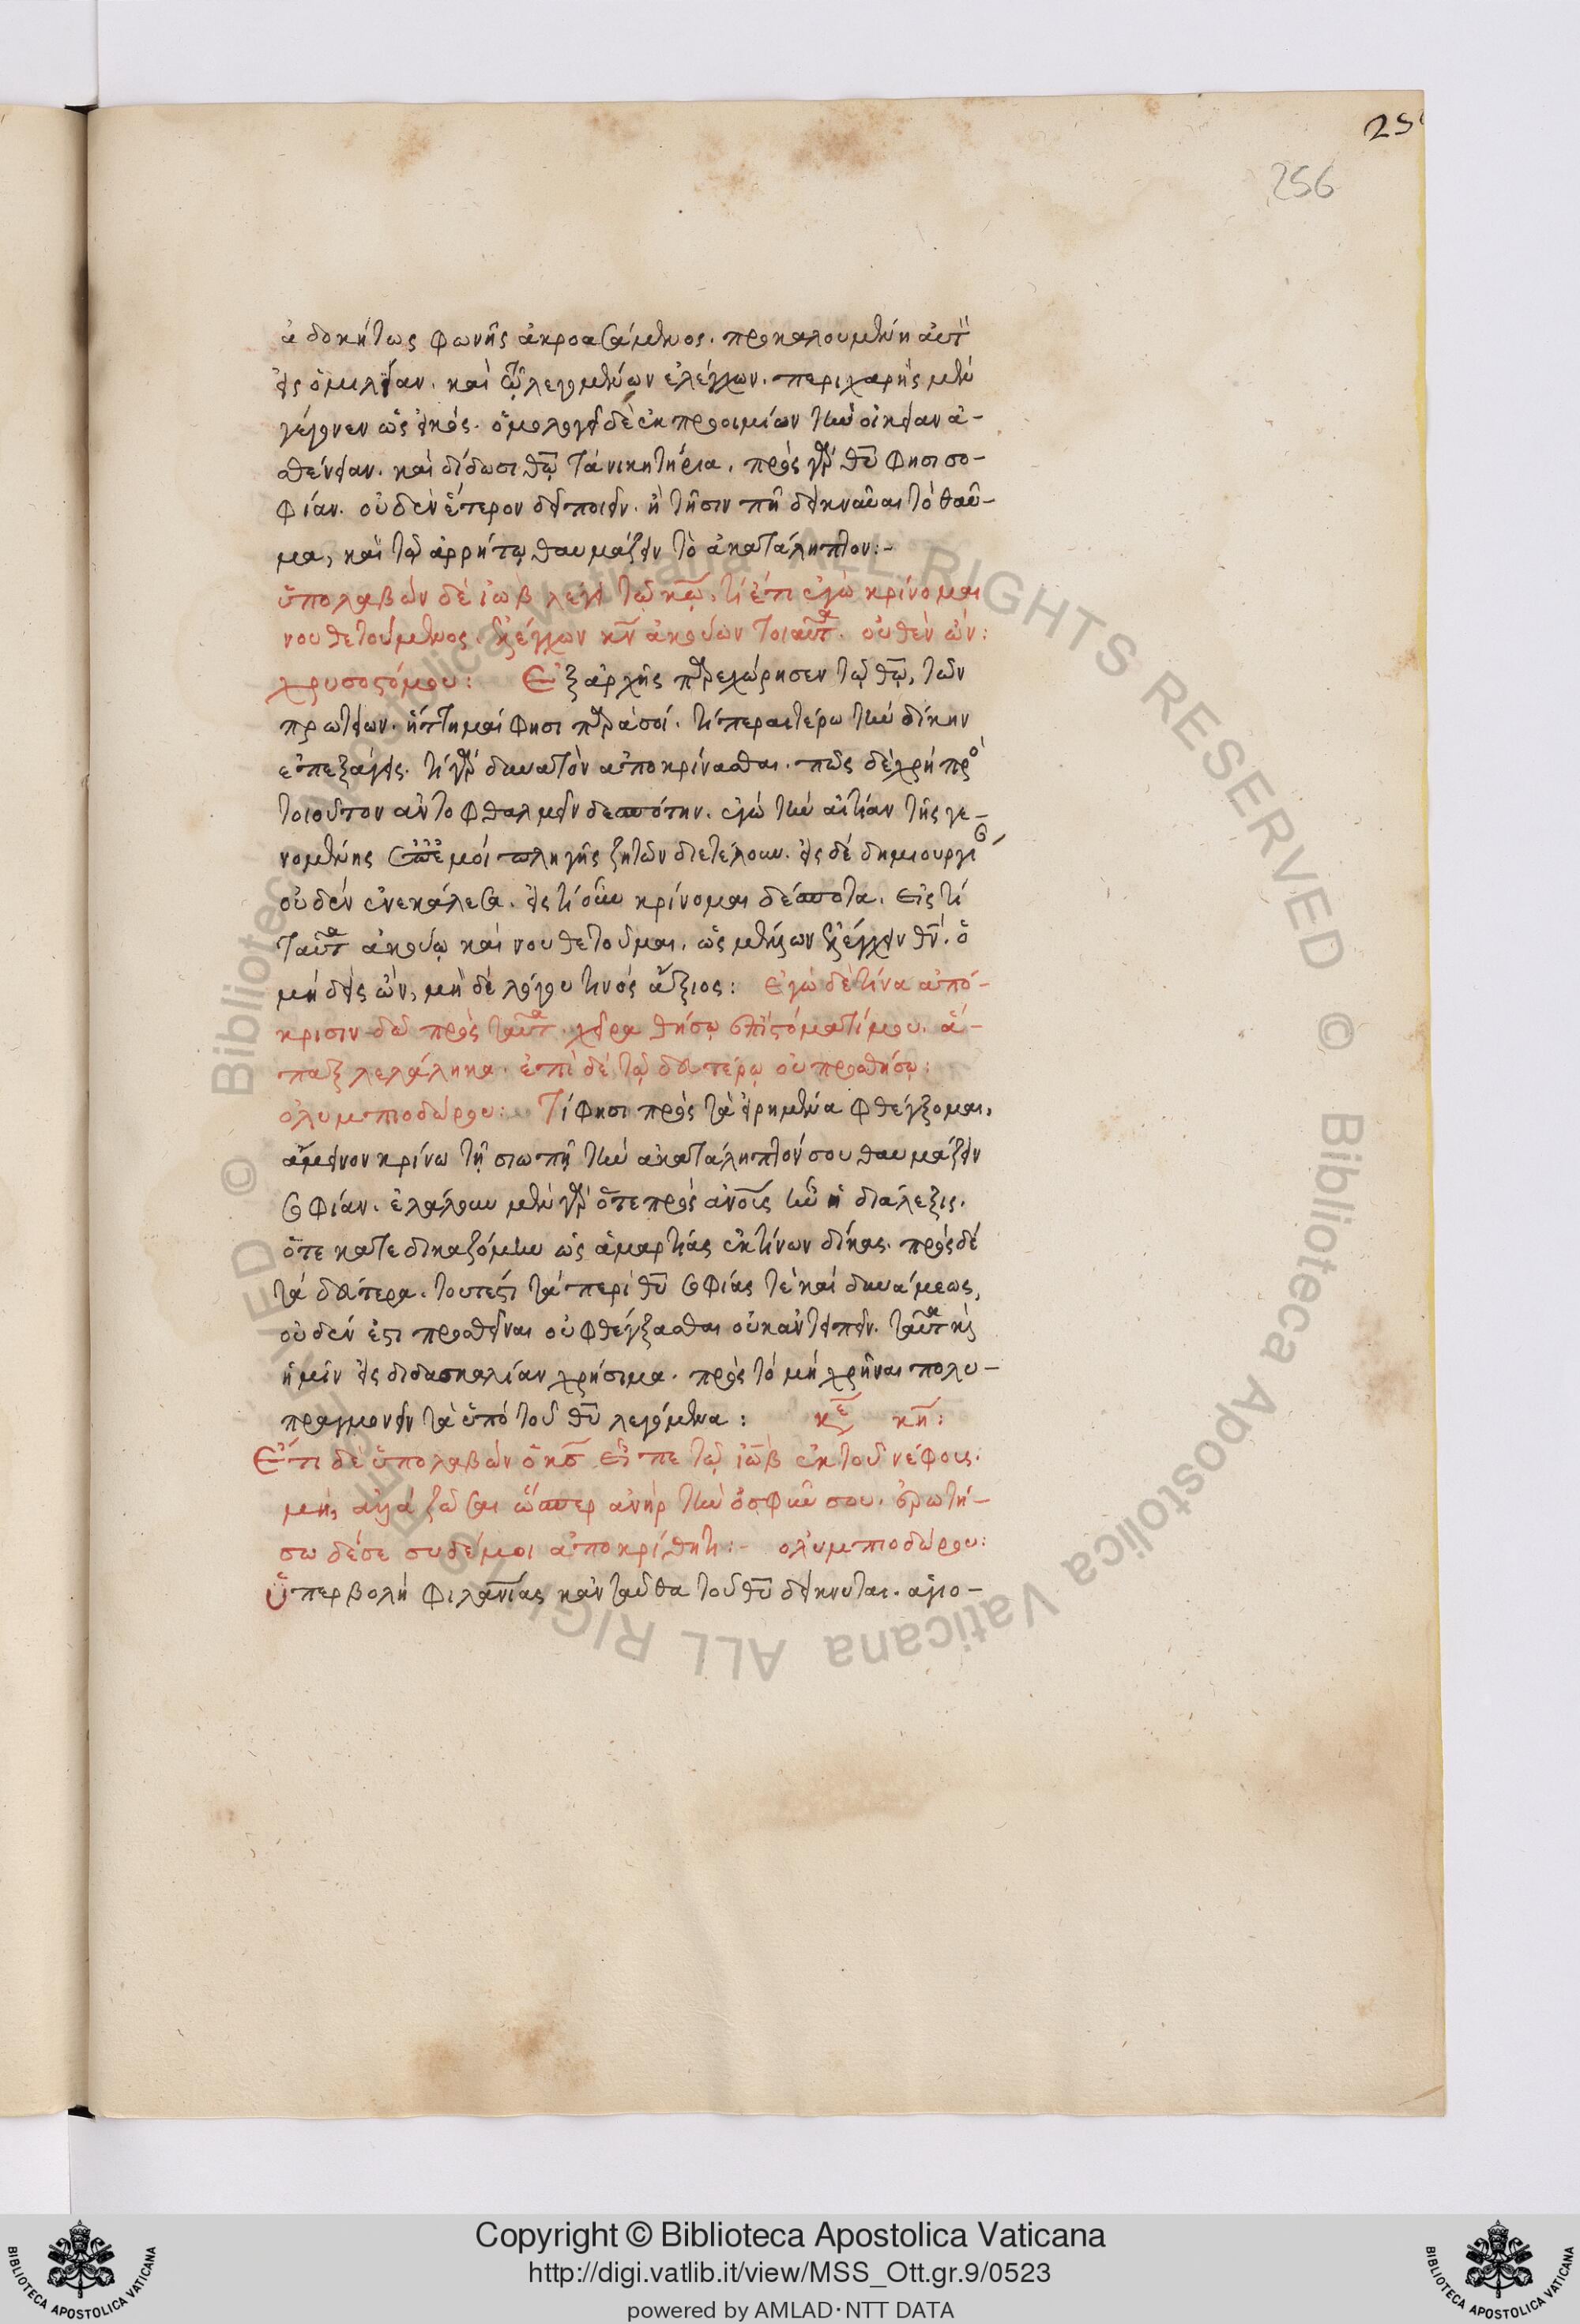 25
256
ἀδοκήτως φωνῆς ἀκροασάμενος. προκαλουμένη αὐτ
εἰς ὁμιλίαν. καὶ τῶ λεγομένων ἐλέγχων. περιχαρὴς μὲν
γέγονεν ὡς εἰκός. ὁμολογεῖ δὲ ἐκ προοιμίων τὴν οἰκείαν ἀ-
σθένειαν. καὶ δίδωσι θῶ τὰ νικητήρια. πρὸς γὰρ θυ φησι σο-
φίαν. οὐδὲν ἕτερον δεῖ ποιεῖν. ἢ τῆ σιωπῆ δεικνῦναι τὸ θαῦ-
μα, καὶ τῶ ἀρρήτω θαυμάζειν τὸ ἀκατάληπτον:-
ὑπολαβὼν δὲ ἰὼβ λέγει τῶ κω. τί ἔτι ἐγὼ κρίνομαι
νουθετούμενος. ἐλέγχων κν ἀκούων τοιαῦτα. οὐθὲν ὤν:
χρυσοστόμου: Ἐξ ἀρχῆς παρεχώρησεν τῶ θω, τῶν
πρωτείων. ἥττημαί φησι παρὰ σοί. τί περαιτέρω τὴν δίκην
ἐπεξάγεις. τί γὰρ δυνατὸν ἀποκρίνασθαι. πῶς δὲ χρὴ πρὸ
τοιοῦτον ἀντοφθαλμεῖν δεσπότην. ἐγὼ τὴν αἰτίαν τῆς γε-
νομένης ἐμοὶ πληγῆς ζητῶν διετέλουν. εἰς δὲ δημιουργί
οὐδὲν ἐνεκάλεσα. εἰς τί οὖν κρίνομαι δέσποτα. εἰς τί
ταῦτα ἀκούω καὶ νουθετοῦμαι. ὡς μέλλων ἐλέγχειν θν. ὁ
μηδεὶς ὤν, μηδὲ λόγου τινὸς ἄξιος: Ἐγὼ δὲ τίνα ἀπό-
κρισιν δῶ πρὸς ταῦτα. χεῖρα θήσω ἐπὶ στόματί μου. ἅ-
παξ λελάληκα. ἐπὶ δὲ τῶ δευτέρω οὐ προσθήσω:
ὀλυμπιοδώρου: Τί φησι πρὸς τὰ εἰρημένα φθέγξομαι,
ἄμεινον κρίνω τῆ σιωπῆ τὴν ἀκατάληπτόν σου θαυμάζειν
σοφίαν. ἐλάλουν μὲν γὰρ ὅτε πρὸς ἀνους ἦν ἡ διάλεξις.
ὅτε κατεδικαζόμην ὡς ἁμαρτίας ἐκτίνων δίκας. πρὸς δὲ
τὰ δεύτερα. τουτέστι τὰ περὶ θυ σοφίας τὲ καὶ δυνάμεως,
οὐδὲν ἔστι προσθεῖναι οὐ φθέγξασθαι οὐκ ἀντειπεῖν. ταῦτα κ
ἡμῖν εἰς διδασκαλίαν χρήσιμα. πρὸς τὸ μὴ χρῆναι πολυ-
πραγμονεῖν τὰ ὑπὸ τοῦ θυ λεγόμενα: κε κη:
Ἔτι δὲ ὑπολαβὼν ὁ κς εἶπε τῶ ἰὼβ ἐκ τοῦ νέφους.
μή, ἀλλὰ ζῶσαι ὥσπερ ἀνὴρ τὴν ὀσφύν σου. ἐρωτή-
σω δέ σε σὺ δέ μοι ἀποκρίθητι:- ὀλυμπιοδώρου:
Ὑπερβολὴ φιλανιας κἀνταῦθα τοῦ θυ δείκνυται. ἀγιο-
Copyright © Biblioteca Apostolica Vaticana
http://digi.vatlib.it/view/MSS_Ott.gr.9/0523
powered by AMLAD·NTT DATA